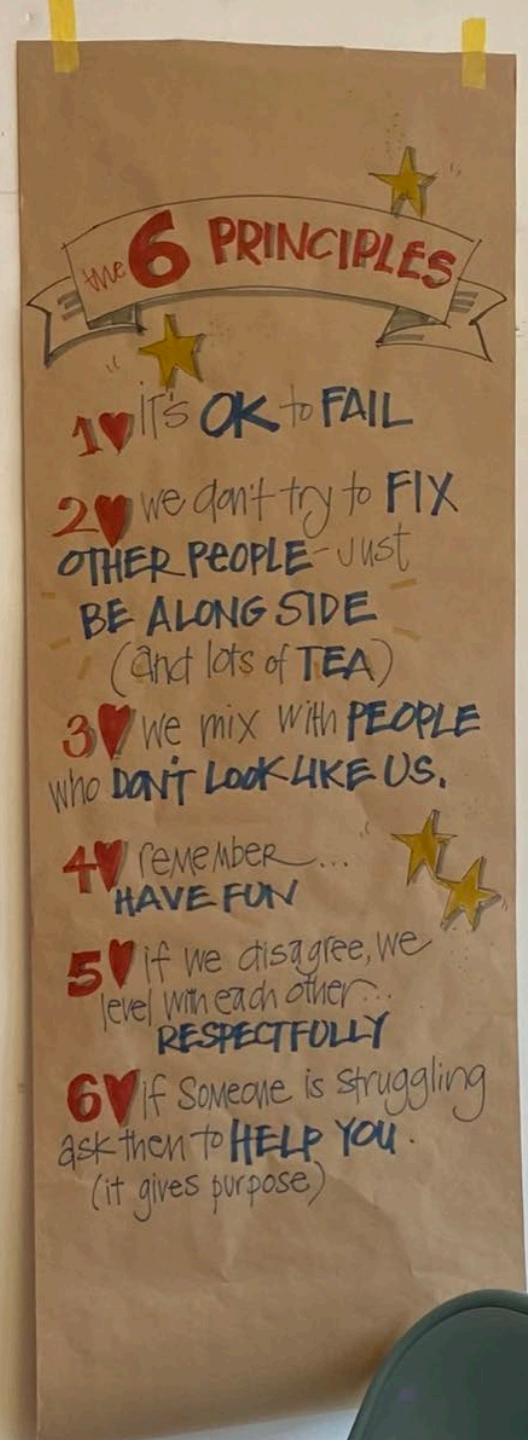 the 6 PRINCIPLES
1 IT'S OK to FAIL
2 we don't try to FIX
OTHER PEOPLE - Just
BE ALONG SIDE
(and lots of TEA)
3 we mix with PEOPLE
who DON'T LOOK LIKE US.
4 remember...
HAVE FUN
5 if we disagree, we
level with each other...
RESPECTFULLY
6 if someone is struggling
ask then to HELP YOU.
(it gives purpose)